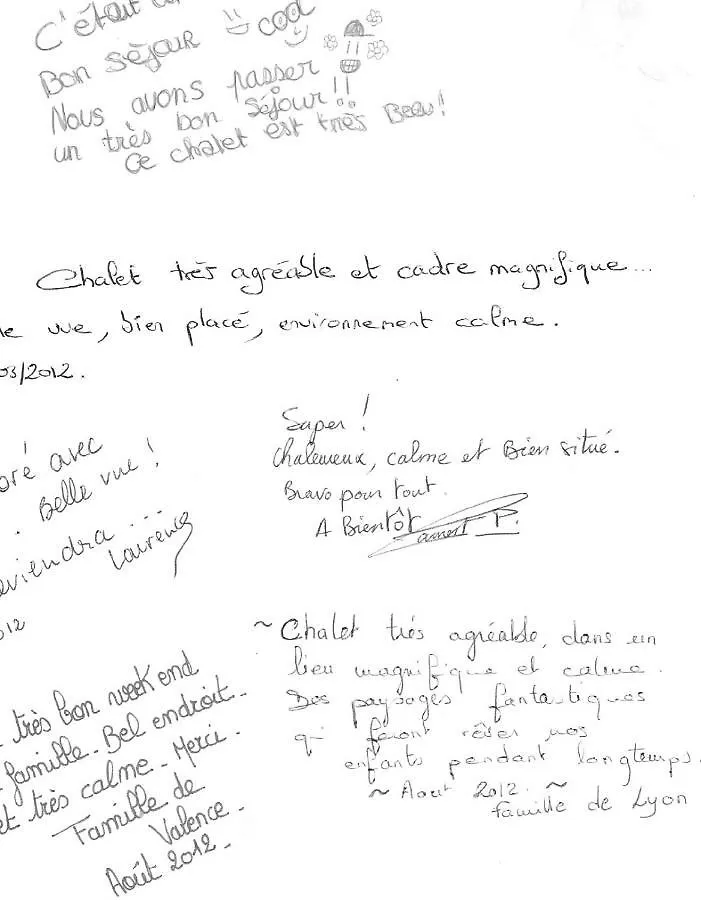 C'était
cool
Bon séjour
Nous avons passer
un très bon séjour!!
Ce chalet est très Beau!
Chalet très agréable et cadre magnifique...
vue, bien placé, environnement calme.
03/2012.
Super!
Chaleureux, calme et Bien situé.
Bravo pour tout.
A Bientôt
P.
avec
Belle vue!
...
12
~ Chalet très agréable, dans un
lieu magnifique et calme.
Des paysages fantastiques
qui feront rêver nos
enfants pendant longtemps.
~ Aout 2012. ~
famille de Lyon
très bon week end
famille. Bel endroit.
et très calme. Merci.
Famille de
Valence.
Août 2012.